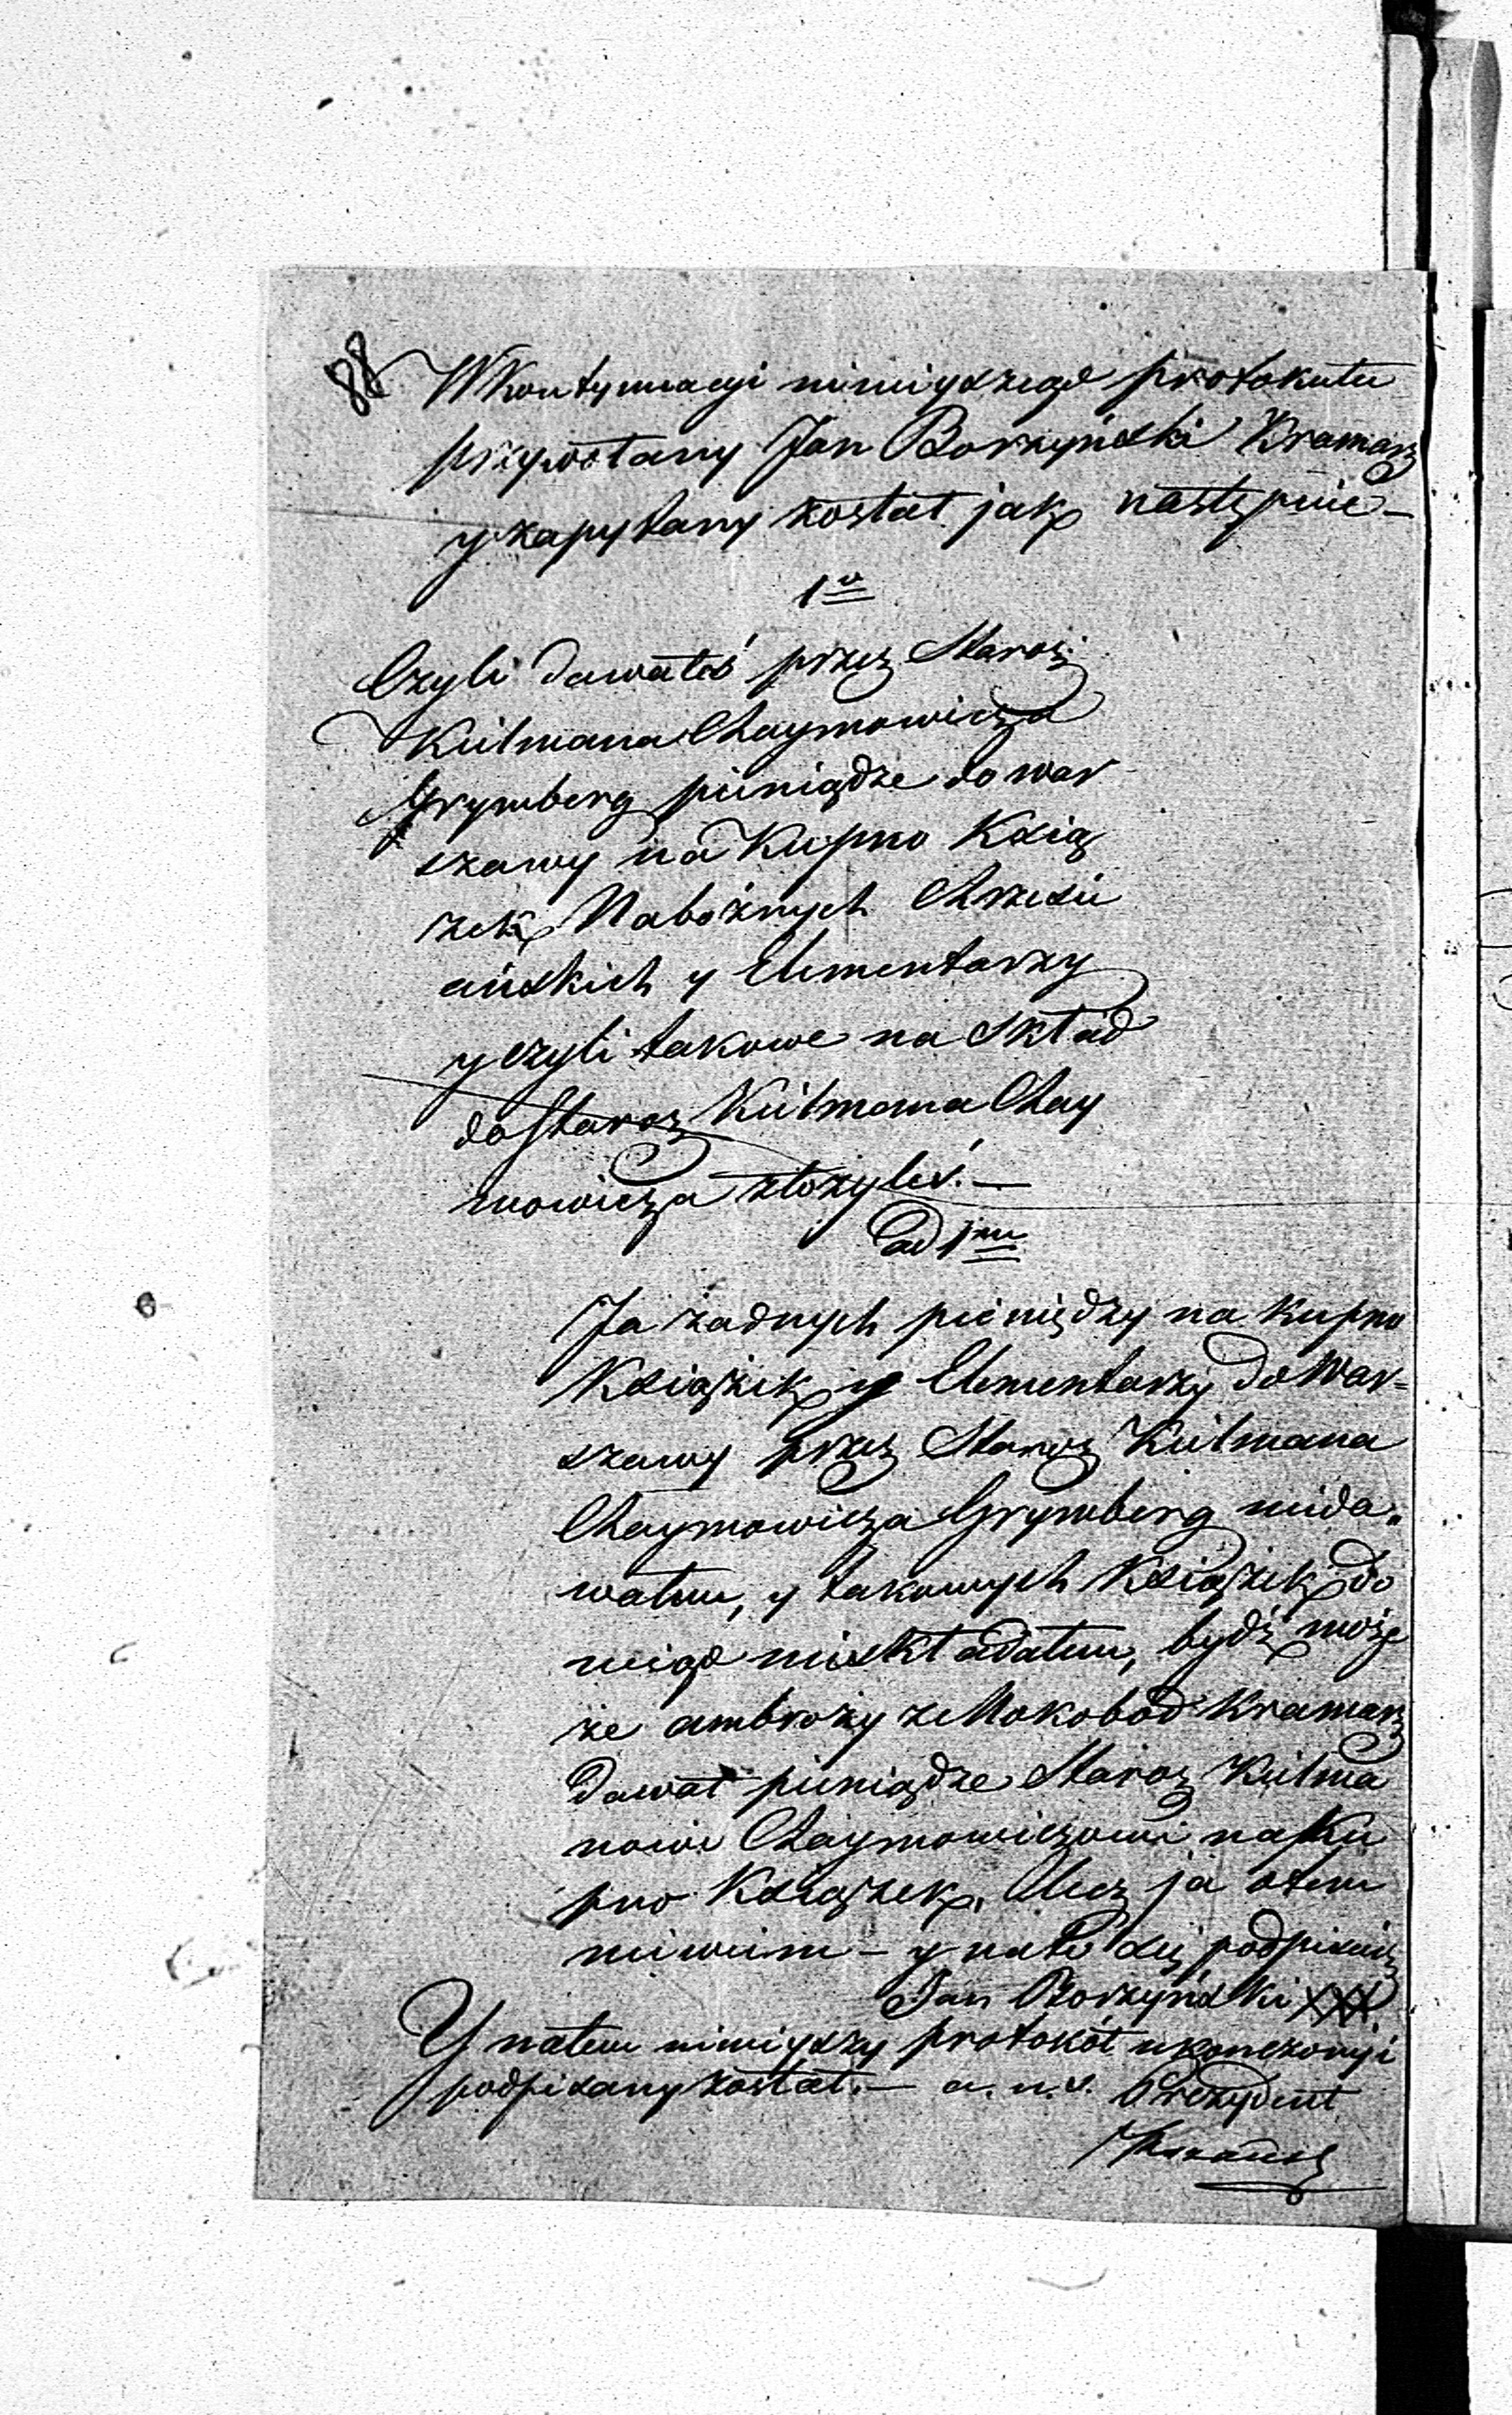 88
W Kontynuacyi niniejszego protokułu
przywołany Jan Borzyński Kramarz
y zapytany został jak następuie –
1o
Czyli dawałeś przez Staroz.
Kielmana Chaymowicza
Grymberg pieniądze do War
szawy na Kupno Ksią
żek Nabożnych Chrześci
ańskich y Elementarzy
y czyli takowe na skład
do Staroz Kielmana Chay
mowicza złożyłeś. –
ad 1mu
Ja żadnych pieniędzy na kupno
Książek y Elementarzy do War=
szawy przez Staroz Kielmana
Chaymowicza Grymberg nieda=
wałem, y takowych Książek do
niego nieskładałem, bydź może
że ambroży z Mokobod Kramarz
dawał pieniądze Staroz Kielma
nowi Chaymowiczowi na Ku
pno Książek, Lecz ja o tem
niewiem – y na to się podpisuię
Jan Borzyński XXX.
Y na tem niniejszy protokół ukonczony i
podpisany został. – a. u. s. Prezydent